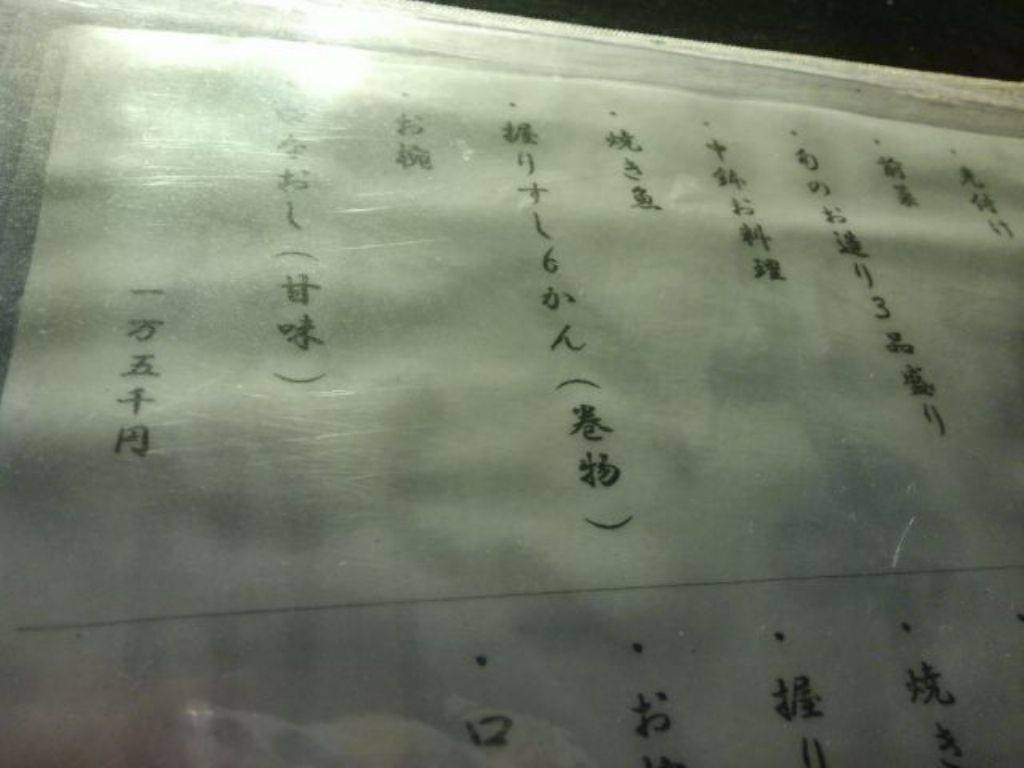 ・先付け
・前菜
・旬のお造り3品盛り
・中鉢お料理
・焼き魚
・握りすし6かん(巻物)
・お椀
おし(甘味)
一万五千円
・焼き
・握り
・お椀
・口